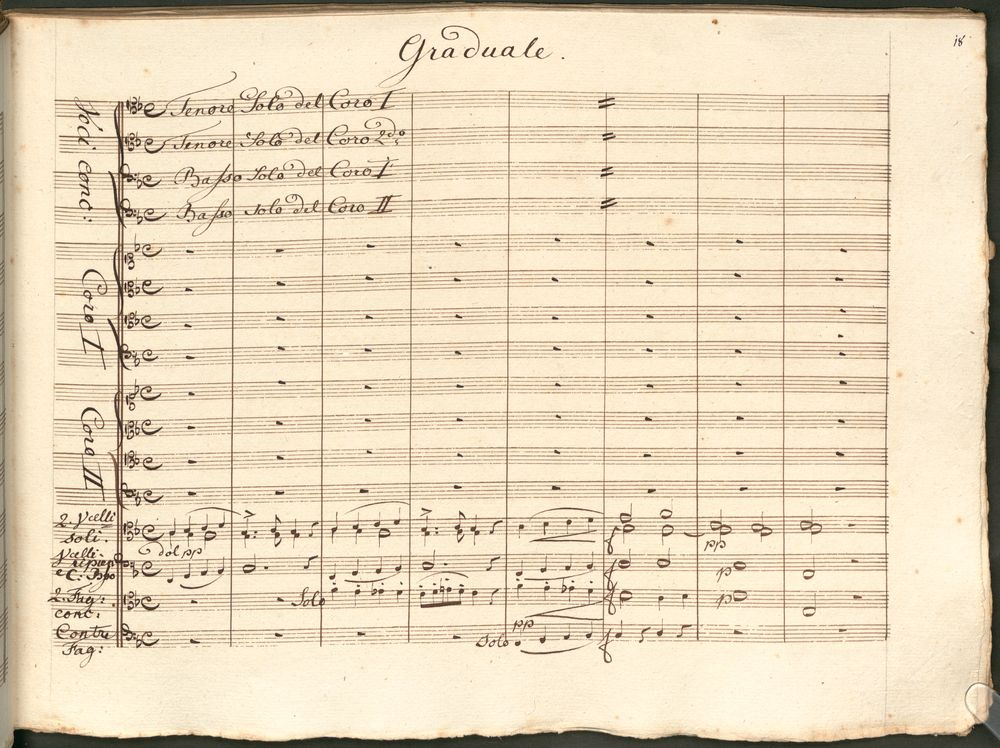 Graduale.
18
Voci conc:
Tenore Solo del Coro I
Tenore Solo del Coro 2do
Basso Solo del Coro I
Basso Solo del Coro II
Coro I
Coro II
2. Vcelli
soli.
dol pp
pp
Vcelli
ripieni
e C: Basso
f
p
2. Fag:
conc:
Solo
f
p
Contra
Fag:
Solo
pp
f